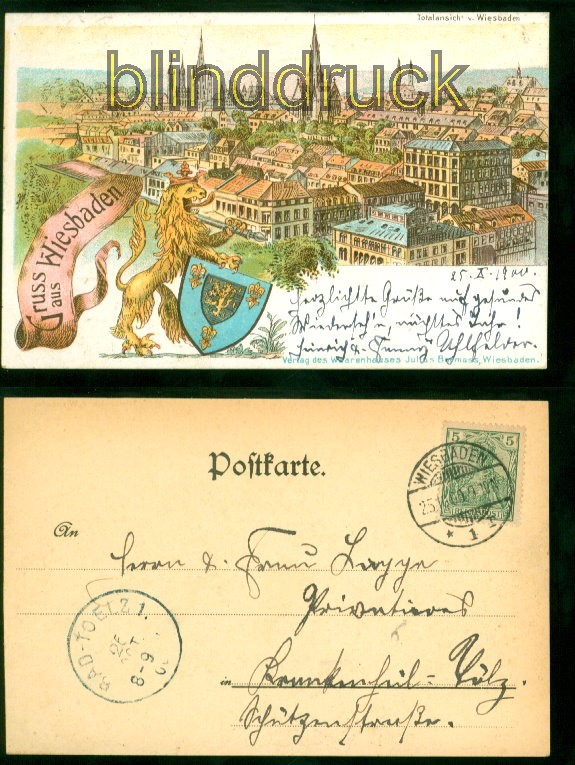 Totalansicht v. Wiesbaden
blinddruck
Gruss
aus
Wiesbaden
25. X. 1900.
Herzlichste Grüße auf gesundes
Wiederseh'n, nächstes Jahr!
Heinrich & Fanny
Verlag des Waarenhauses Julius Bormass, Wiesbaden.
Postkarte.
5 5
WIESBADEN
25
* 1
An
Herrn & Frau Lappe
Privatieres
BAD-TOELZ 1.
26
OKT.
8-9
in Krankenheil-Tölz.
Schützenstraße.